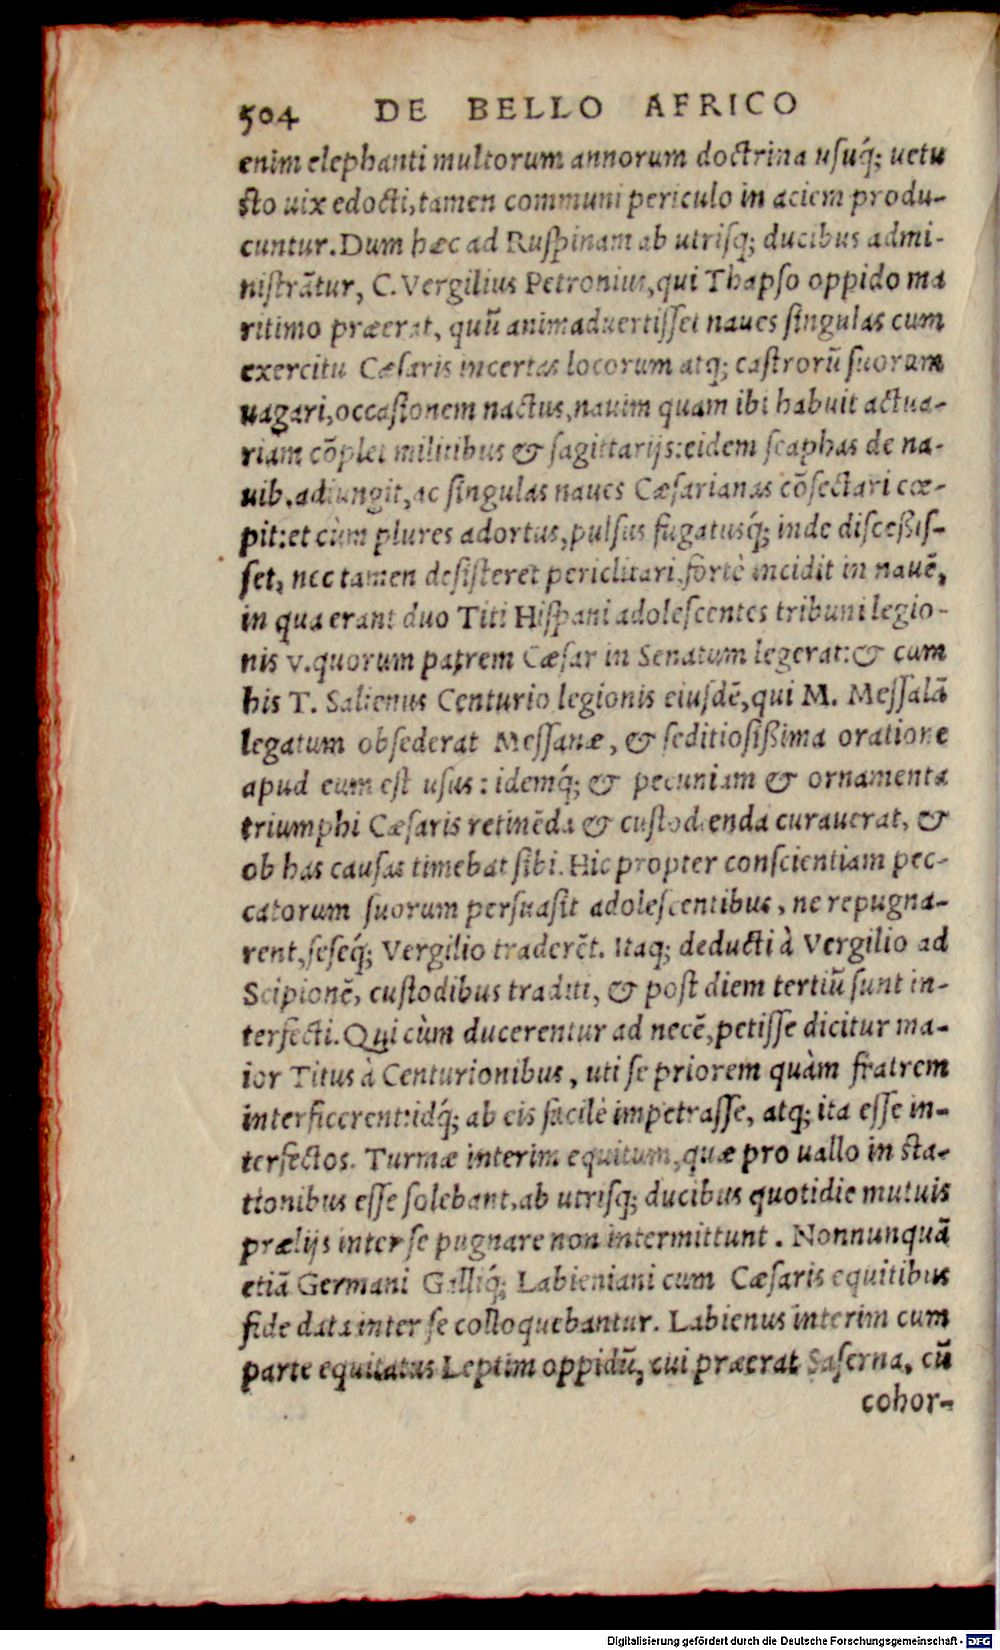 504 DE BELLO AFRICO
enim elephanti multorum annorum doctrina uſuq́; uetu
ſto uix edocti, tamen communi periculo in aciem produ-
cuntur. Dum hæc ad Ruſpinam ab utriſq; ducibus admi-
niſtrātur, C. Vergilius Petronius, qui Thapſo oppido ma
ritimo præerat, quū animaduertiſſet naues ſingulas cum
exercitu Cæſaris incertas locorum atq; caſtrorū ſuorum
uagari, occaſionem nactus, nauim quam ibi habuit actua-
riam cōplet militibus & ſagittarijs: eidem ſcaphas de na-
uib. adiungit, ac ſingulas naues Cæſarianas cōſectari cœ-
pit: et cùm plures adortus, pulſus fugatusq́; inde diſceßiſ-
ſet, nec tamen deſiſteret periclitari, fortè incidit in nauē,
in qua erant duo Titi Hiſpani adoleſcentes tribuni legio-
nis v. quorum patrem Cæſar in Senatum legerat: & cum
his T. Salienus Centurio legionis eiuſdē, qui M. Meſſalā
legatum obſederat Meſſanæ, & ſeditioſißima oratione
apud eum eſt uſus: idemq́; & pecuniam & ornamenta
triumphi Cæſaris retinēda & cuſtodienda curauerat, &
ob has cauſas timebat ſibi. Hic propter conſcientiam pec-
catorum ſuorum perſuaſit adoleſcentibus, ne repugna-
rent, ſeſeq́; Vergilio traderēt. Itaq; deducti à Vergilio ad
Scipionē, cuſtodibus traditi, & poſt diem tertiū ſunt in-
terfecti. Qui cùm ducerentur ad necē, petiſſe dicitur ma-
ior Titus à Centurionibus, uti ſe priorem quàm fratrem
interficerent: idq́; ab eis facilè impetraſſe, atq; ita eſſe in-
terfectos. Turmæ interim equitum, quæ pro uallo in ſta-
tionibus eſſe ſolebant, ab utriſq; ducibus quotidie mutuis
prælijs inter ſe pugnare non intermittunt. Nonnunquā
etiā Germani Galliq́; Labieniani cum Cæſaris equitibus
fide data inter ſe colloquebantur. Labienus interim cum
parte equitatus Leptim oppidū, cui præerat Saſerna, cū
cohor-
Digitalisierung gefördert durch die Deutsche Forschungsgemeinschaft - DFG